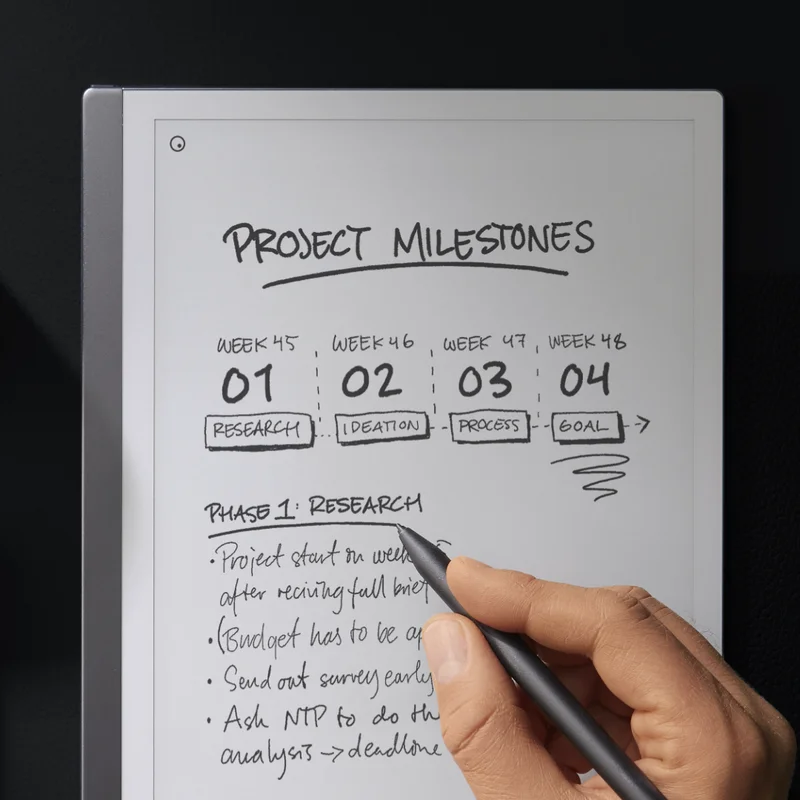 PROJECT MILESTONES
WEEK 45 WEEK 46 WEEK 47 WEEK 48
01 02 03 04
RESEARCH IDEATION PROCESS GOAL
PHASE 1: RESEARCH
• Project start on week
after reciving full brief
• (Budget has to be
• Send out survey early
• Ask NTP to do
analysis → deadline